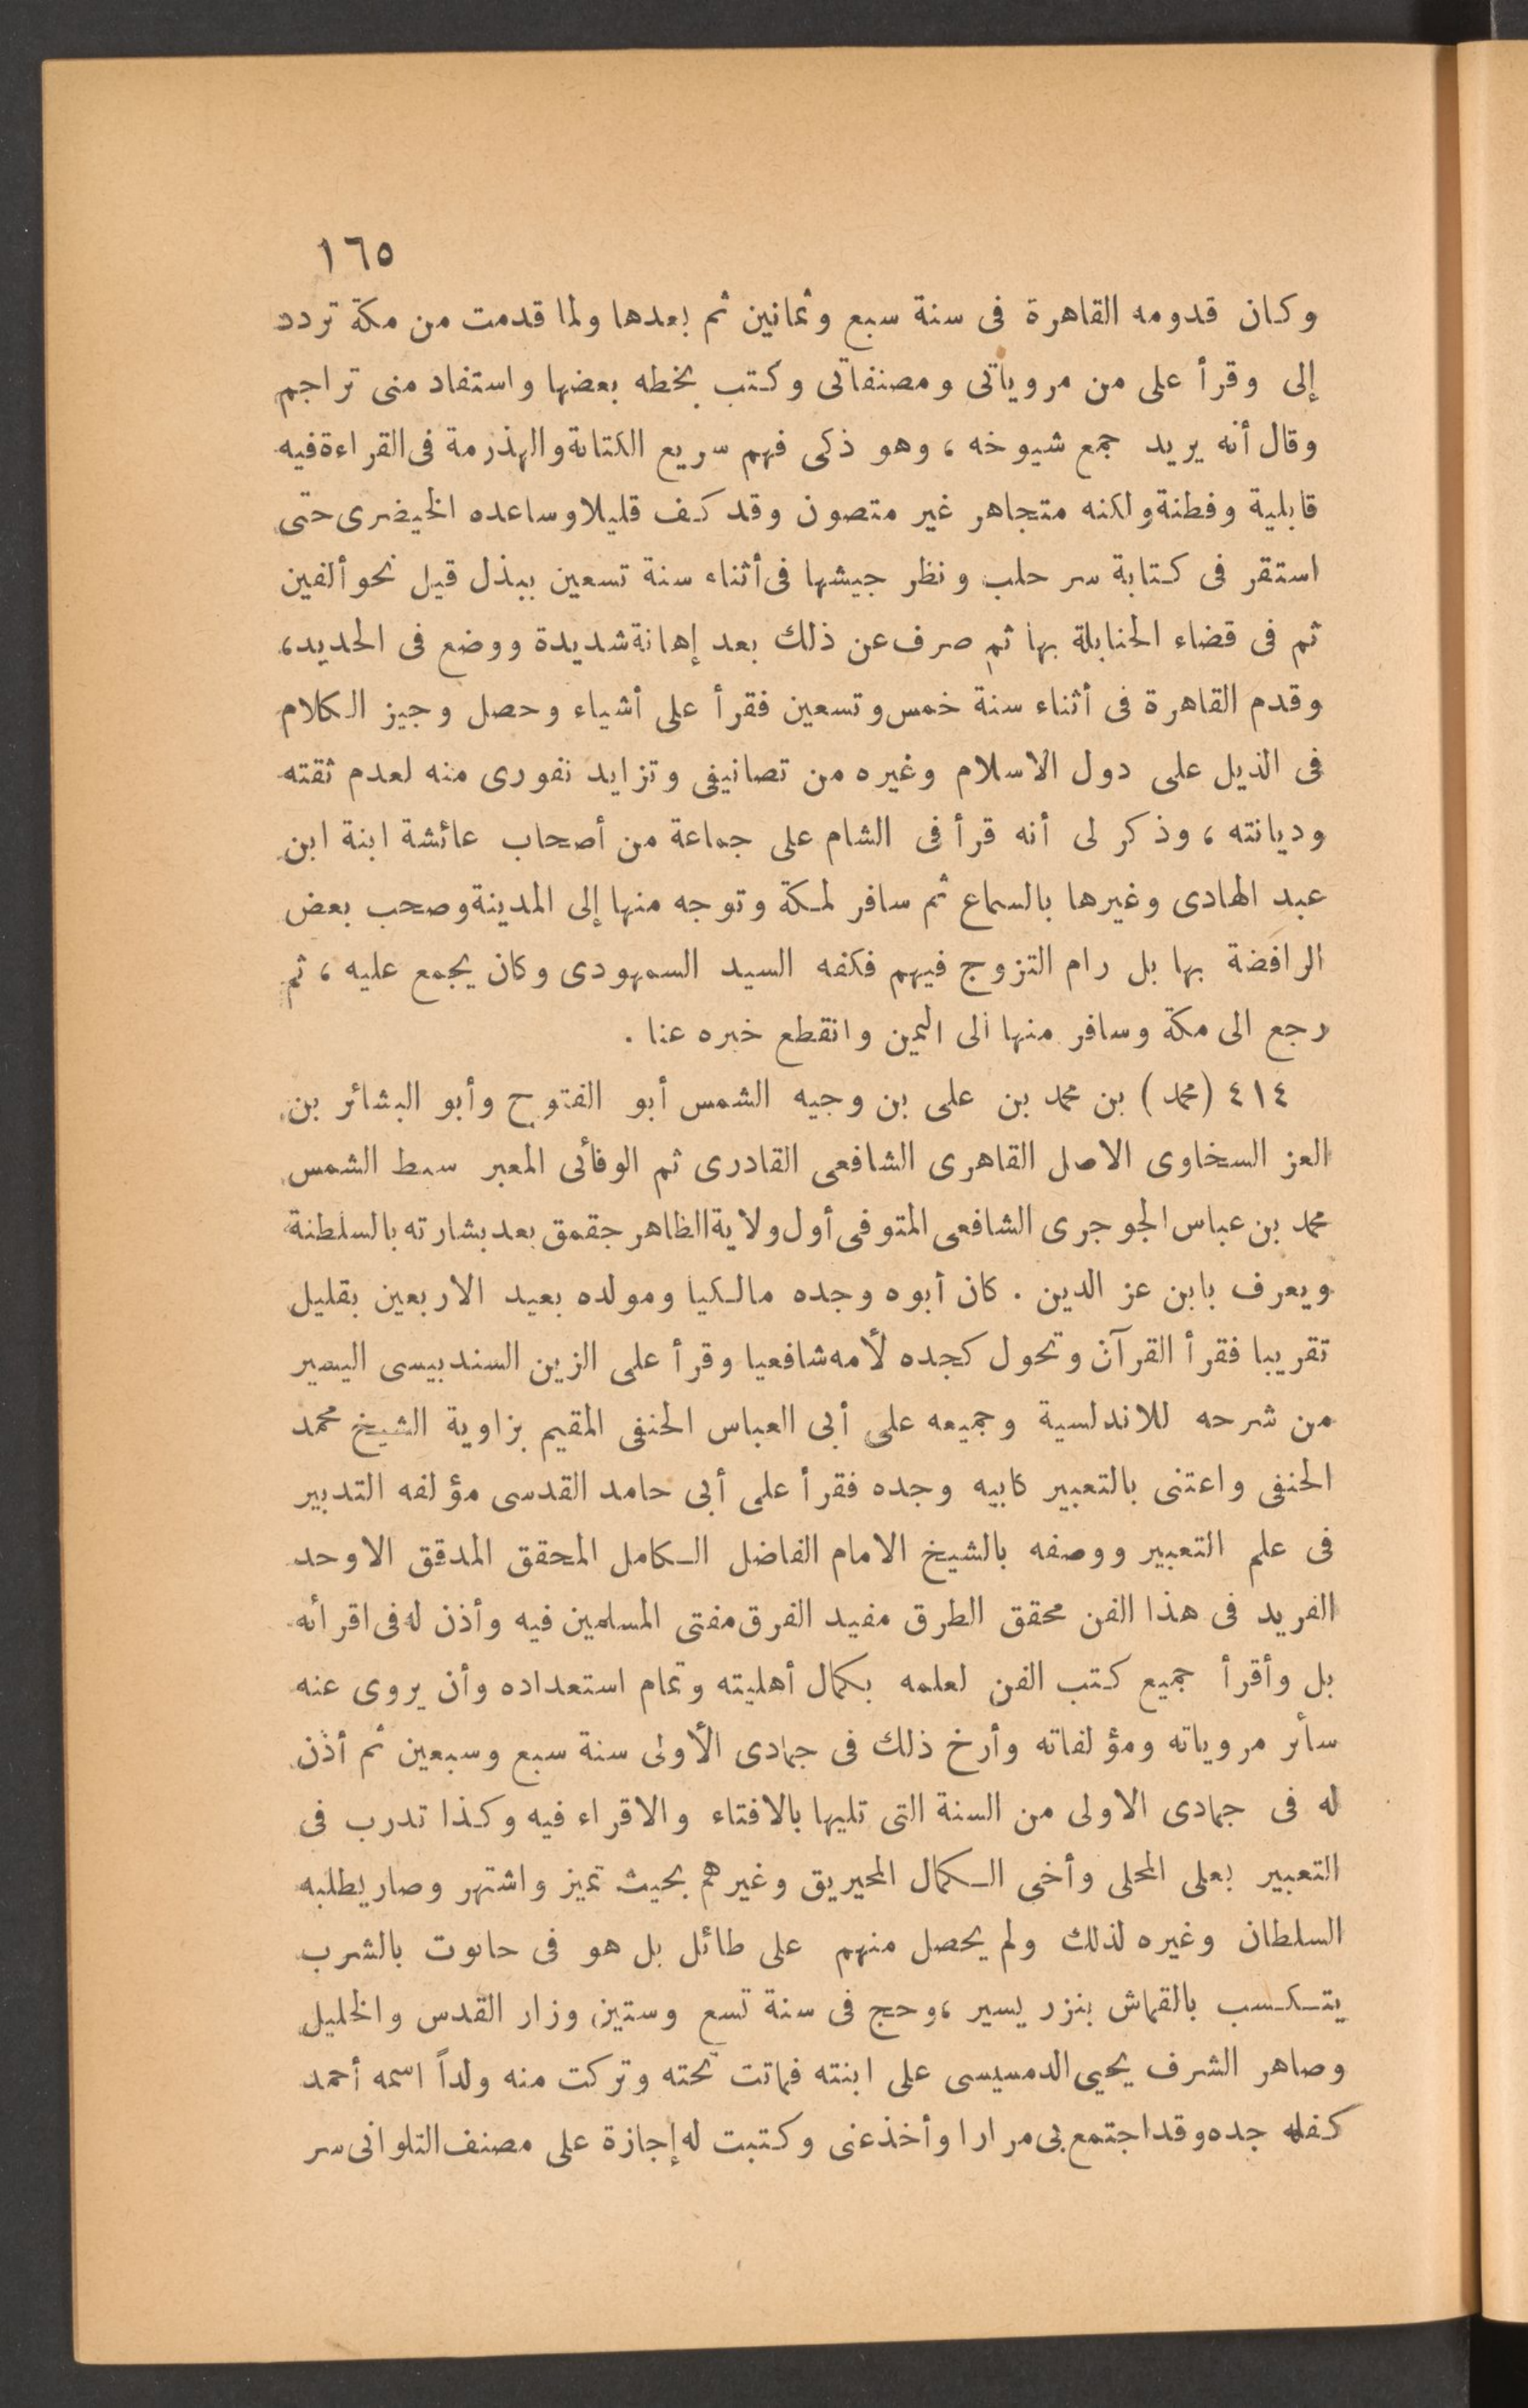 ١٦٥
وكان قدومه القاهرة فى سنة سبع وثمانين ثم بعدها ولما قدمت من مكة تردد
إلى وقرأ على من مروياتى ومصنفاتى وكتب بخطه بعضها واستفاد منى تراجم
وقال أنه يريد جمع شيوخه ، وهو ذكى فهم سريع الكتابة والهذرمة فى القراءة فيه
قابلية وفطنة ولكنه متجاهر غير متصون وقد كف قليلا وساعده الخيضرى حتى
استقر فى كتابة سر حلب ونظر جيشها فى أثناء سنة تسعين ببذل قيل نحو ألفين
ثم فى قضاء الحنابلة بها ثم صرف عن ذلك بعد إهانة شديدة ووضع فى الحديد ،
وقدم القاهرة فى أثناء سنة خمس وتسعين فقرأ على أشياء وحصل وجيز الكلام
فى الذيل على دول الاسلام وغيره من تصانيفى وتزايد نفورى منه لعدم ثقته
وديانته ، وذكر لى أنه قرأ فى الشام على جماعة من أصحاب عائشة ابنة ابن
عبد الهادى وغيرها بالسماع ثم سافر لمكة وتوجه منها إلى المدينة وصحب بعض
الرافضة بها بل رام التزوج فيهم فكفه السيد السمهودى وكان يجمع عليه ، ثم
رجع الى مكة وسافر منها الى اليمن وانقطع خبره عنا .
٤١٤ (محمد) بن محمد بن على بن وجيه الشمس أبو الفتوح وأبو البشائر بن
العز السخاوى الاصل القاهرى الشافعى القادرى ثم الوفائى المعبر سبط الشمس
محمد بن عباس الجوجرى الشافعى المتوفى أول ولاية الظاهر جقمق بعد بشارته بالسلطنة
ويعرف بابن عز الدين . كان أبوه وجده مالكيا ومولده بعيد الاربعين بقليل
تقريبا فقرأ القرآن وتحول كجده لأمه شافعيا وقرأ على الزين السندبيسى اليسير
من شرحه للاندلسية وجميعه على أبى العباس الحنفى المقيم بزاوية الشيخ محمد
الحنفى واعتنى بالتعبير كابيه وجده فقرأ على أبى حامد القدسى مؤلفه التدبير
فى علم التعبير ووصفه بالشيخ الامام الفاضل الكامل المحقق المدقق الاوحد
الفريد فى هذا الفن محقق الطرق مفيد الفرق مفتى المسلمين فيه وأذن له فى اقرائه
بل وأقرأ جميع كتب الفن لعلمه بكمال أهليته وتمام استعداده وأن يروى عنه
سائر مروياته ومؤلفاته وأرخ ذلك فى جمادى الأولى سنة سبع وسبعين ثم أذن
له فى جمادى الاولى من السنة التى تليها بالافتاء والاقراء فيه وكذا تدرب فى
التعبير بعلى المحلى وأخى الكمال المحيريق وغيرهم بحيث تميز واشتهر وصار يطلبه
السلطان وغيره لذلك ولم يحصل منهم على طائل بل هو فى حانوت بالشرب
يتكسب بالقماش بنزر يسير ، وحج فى سنة تسع وستين وزار القدس والخليل
وصاهر الشرف يحيى الدمسيسى على ابنته فماتت تحته وتركت منه ولداً اسمه أحمد
كفله جده وقد اجتمع بى مرارا وأخذ عنى وكتبت له إجازة على مصنف التلوانى سر